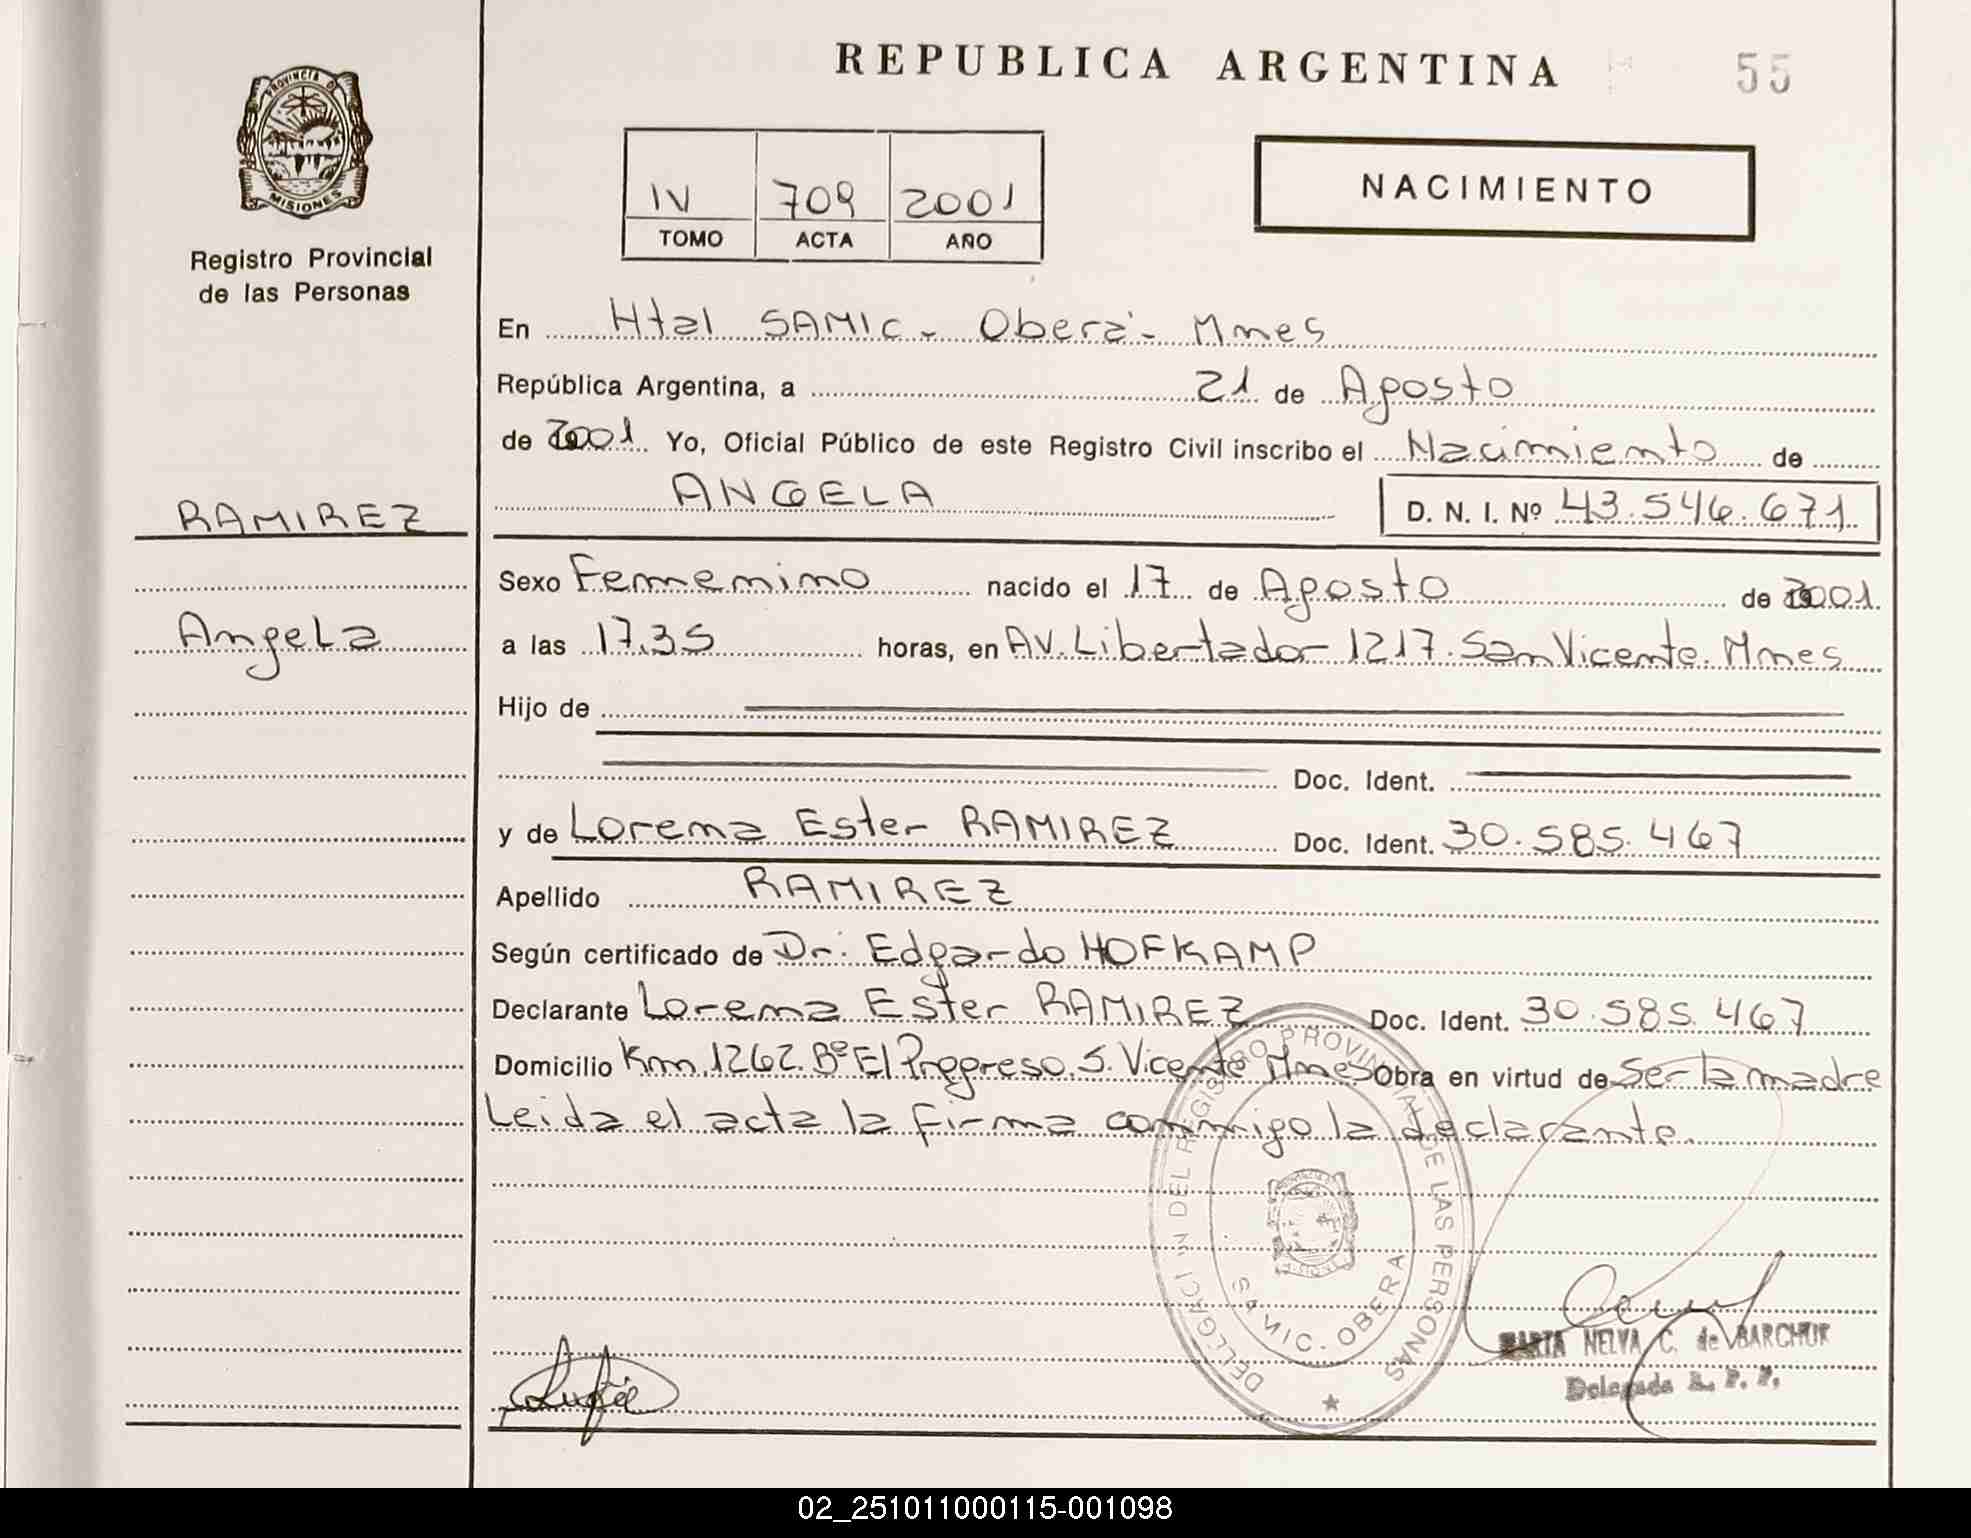 REPUBLICA ARGENTINA
55
PROVINCIA DE
MISIONES
Registro Provincial
de las Personas
IV 709 2001
TOMO ACTA AÑO
NACIMIENTO
En Htal SAMIC - Oberá - Mnes
República Argentina, a 21 de Agosto
de 2001 Yo, Oficial Público de este Registro Civil inscribo el Nacimiento de
ANGELA D. N. I. Nº 43.546.671
RAMIREZ
Angela
Sexo Femenino nacido el 17 de Agosto de 2001
a las 17.35 horas, en AV. Libertador 1217. San Vicente. Mnes
Hijo de
Doc. Ident.
y de Lorena Ester RAMIREZ Doc. Ident. 30.585.467
Apellido RAMIREZ
Según certificado de Dr. Edgardo HOFKAMP
Declarante Lorena Ester RAMIREZ Doc. Ident. 30.585.467
Domicilio Km 1262. Bº El Progreso. S. Vicente Mnes Obra en virtud de Ser la madre
Leida el acta la firma conmigo la declarante.
DELEGACI N DEL REGISTRO PROVINCIAL DE LAS PERSONAS
SAMIC. OBERA
MARTA NELVA C. de BARCHUK
Delegada R. P. P.
02_251011000115-001098